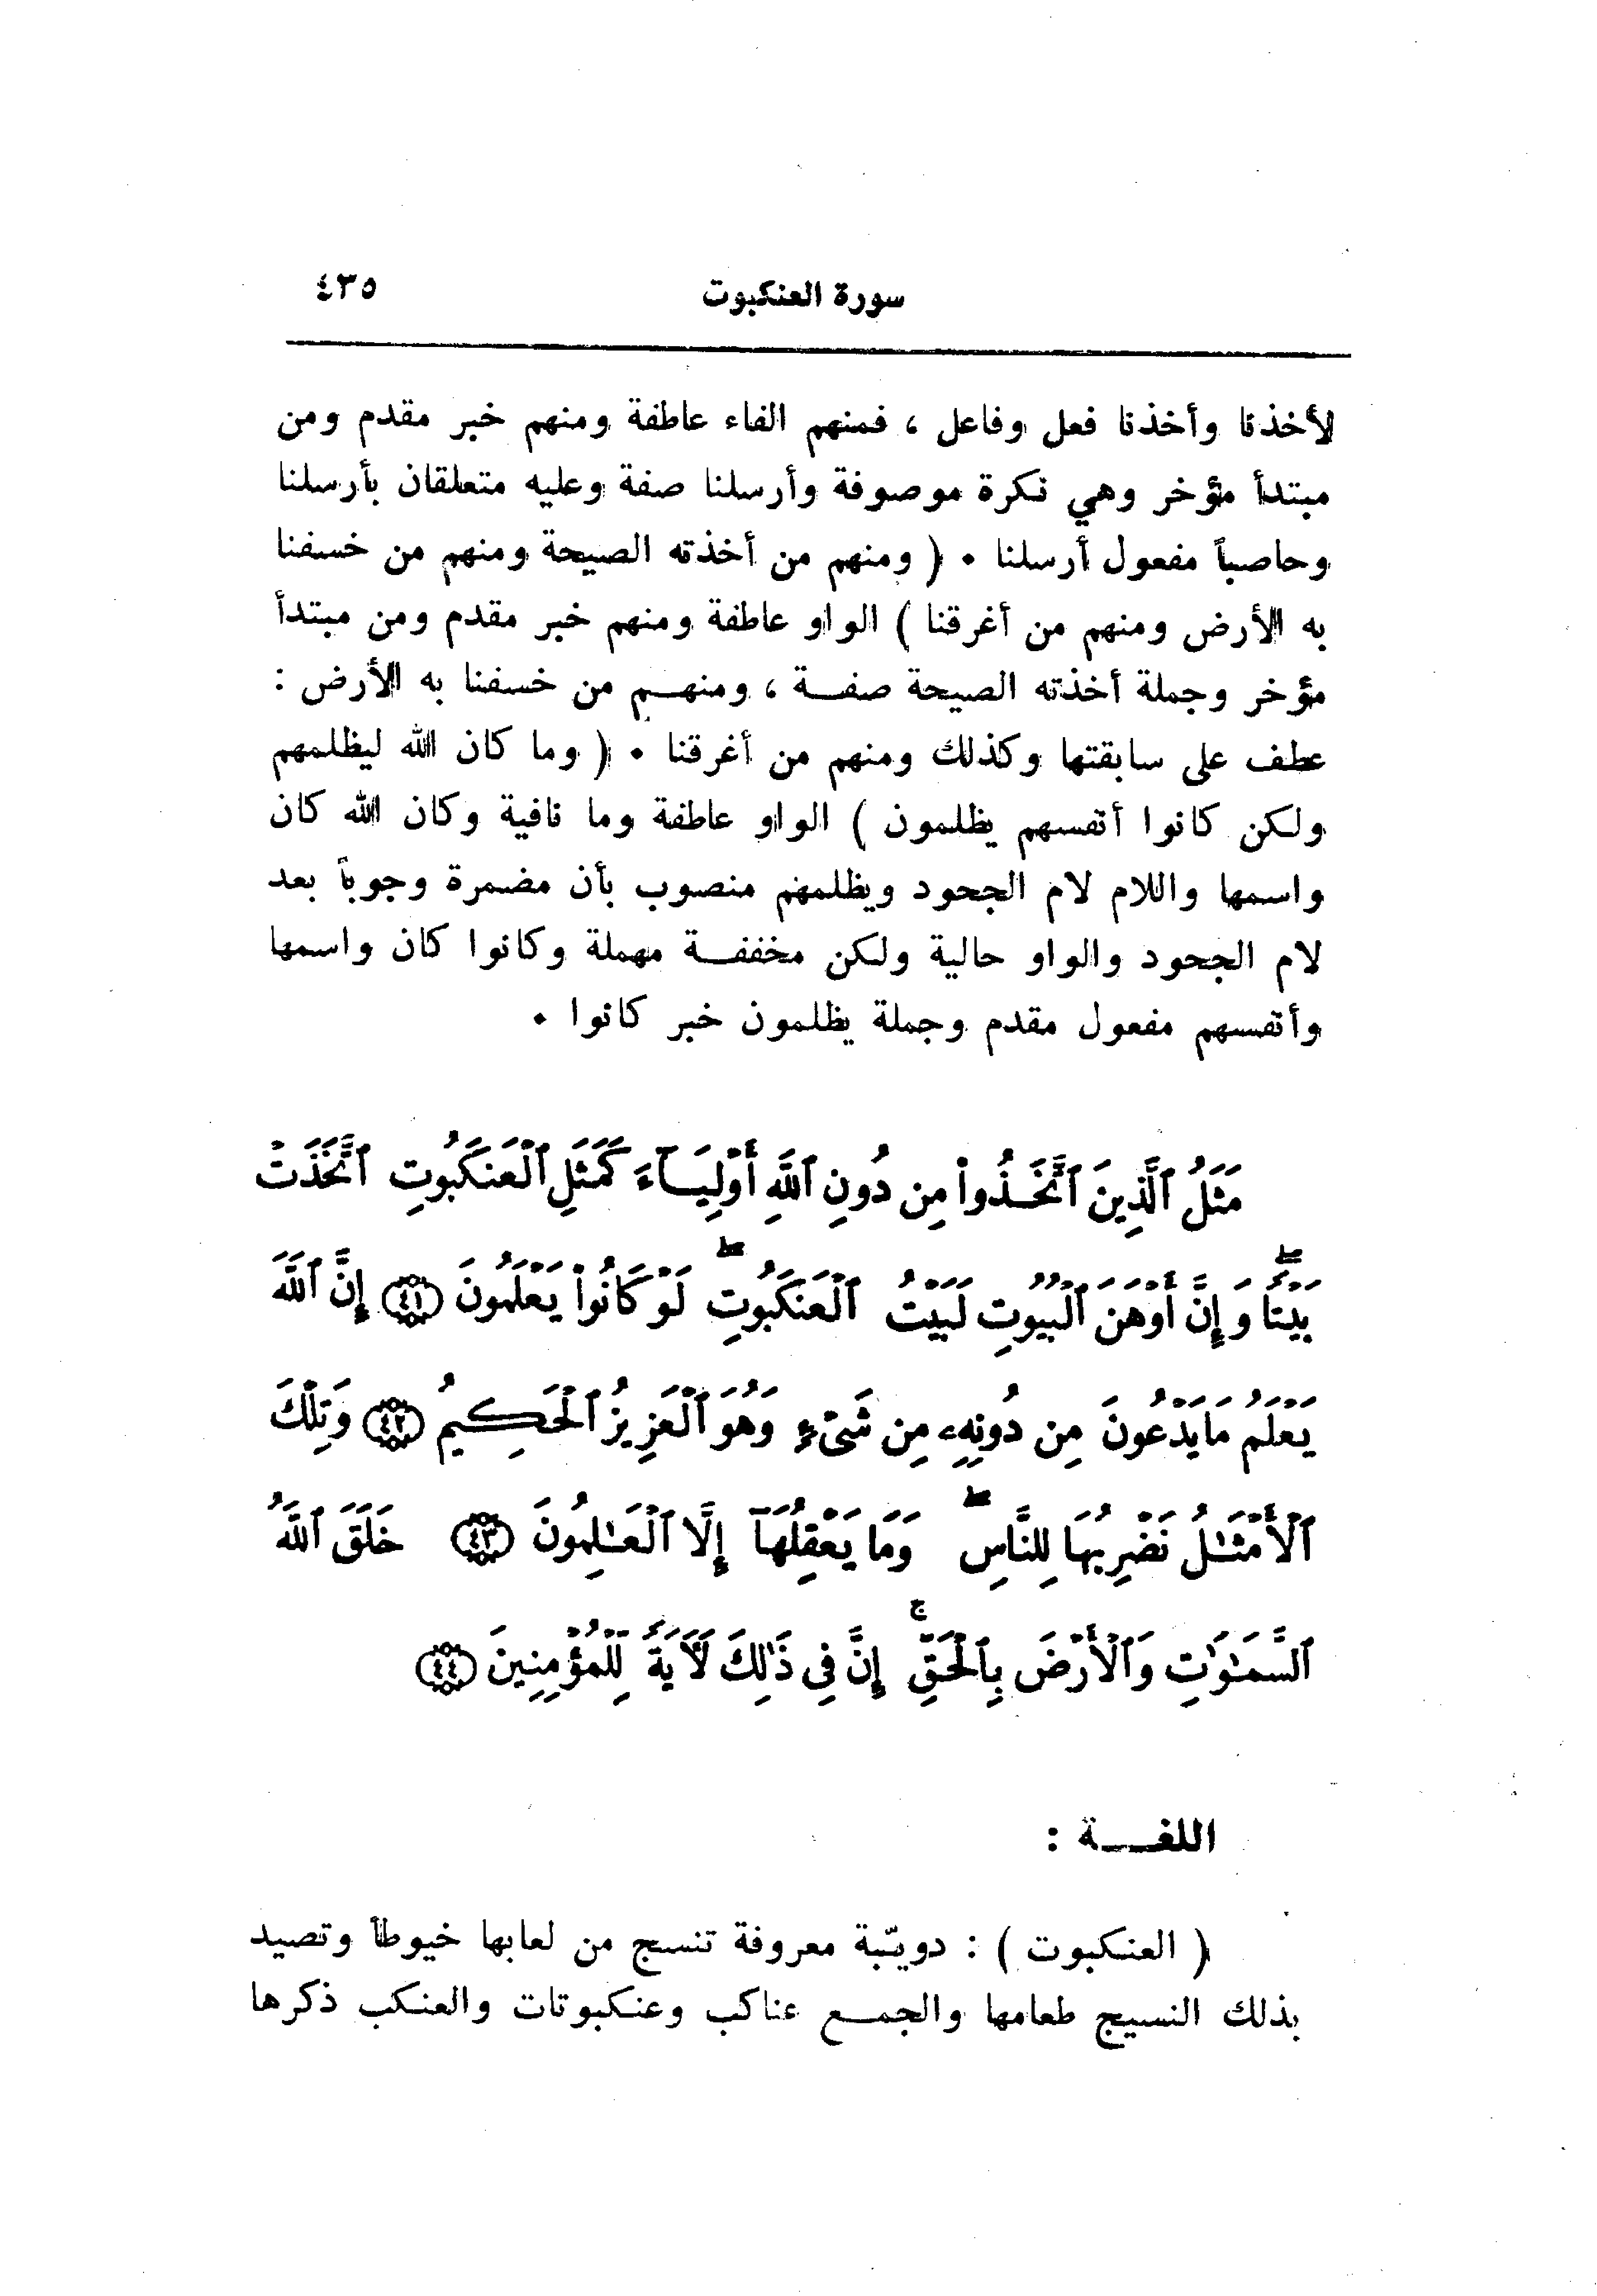 سورة العنكبوت ٤٣٥
لأخذنا وأخذنا فعل وفاعل ، فمنهم الفاء عاطفة ومنهم خبر مقدم ومن
مبتدأ مؤخر وهي نكرة موصوفة وأرسلنا صفة وعليه متعلقان بأرسلنا
وحاصباً مفعول أرسلنا . ( ومنهم من أخذته الصيحة ومنهم من خسفنا
به الأرض ومنهم من أغرقنا ) الواو عاطفة ومنهم خبر مقدم ومن مبتدأ
مؤخر وجملة أخذته الصيحة صفــة ، ومنهــم من خسفنا به الأرض :
عطف على سابقتها وكذلك ومنهم من أغرقنا . ( وما كان الله ليظلمهم
ولكن كانوا أنفسهم يظلمون ) الواو عاطفة وما نافية وكان الله كان
واسمها واللام لام الجحود ويظلمهم منصوب بأن مضمرة وجوباً بعد
لام الجحود والواو حالية ولكن مخففــة مهملة وكانوا كان واسمها
وأنفسهم مفعول مقدم وجملة يظلمون خبر كانوا .
مَثَلُ ٱلَّذِينَ ٱتَّخَذُواْ مِن دُونِ ٱللَّهِ أَوْلِيَآءَ كَمَثَلِ ٱلْعَنكَبُوتِ ٱتَّخَذَتْ
بَيْتًاۖ وَإِنَّ أَوْهَنَ ٱلْبُيُوتِ لَبَيْتُ ٱلْعَنكَبُوتِۖ لَوْ كَانُواْ يَعْلَمُونَ ﴿٤١﴾ إِنَّ ٱللَّهَ
يَعْلَمُ مَا يَدْعُونَ مِن دُونِهِۦ مِن شَىْءٍ وَهُوَ ٱلْعَزِيزُ ٱلْحَكِيمُ ﴿٤٢﴾ وَتِلْكَ
ٱلْأَمْثَٰلُ نَضْرِبُهَا لِلنَّاسِۖ وَمَا يَعْقِلُهَآ إِلَّا ٱلْعَٰلِمُونَ ﴿٤٣﴾ خَلَقَ ٱللَّهُ
ٱلسَّمَٰوَٰتِ وَٱلْأَرْضَ بِٱلْحَقِّۚ إِنَّ فِى ذَٰلِكَ لَأٓيَةً لِّلْمُؤْمِنِينَ ﴿٤٤﴾
اللغــــة :
( العنكبوت ) : دويّبة معروفة تنسج من لعابها خيوطاً وتصيد
بذلك النسيج طعامها والجمــع عناكب وعنكبوتات والعنكب ذكرها